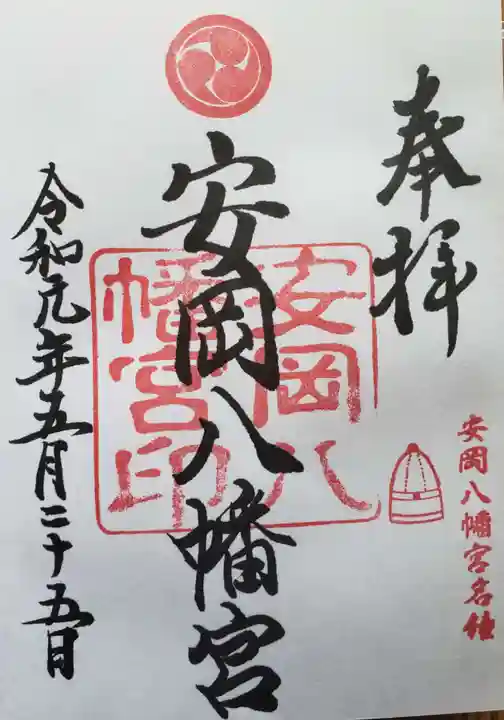 奉拝
安岡八幡宮
安岡八幡宮印
令和元年五月二十五日
安岡八幡宮名種